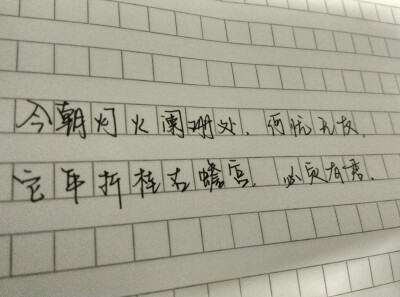 今朝灯火阑珊处,何忧无友,
它年折桂古蟾宫,必有君.